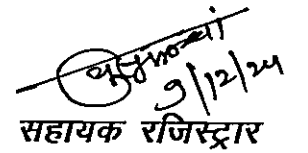 9/12/24
सहायक रजिस्ट्रार